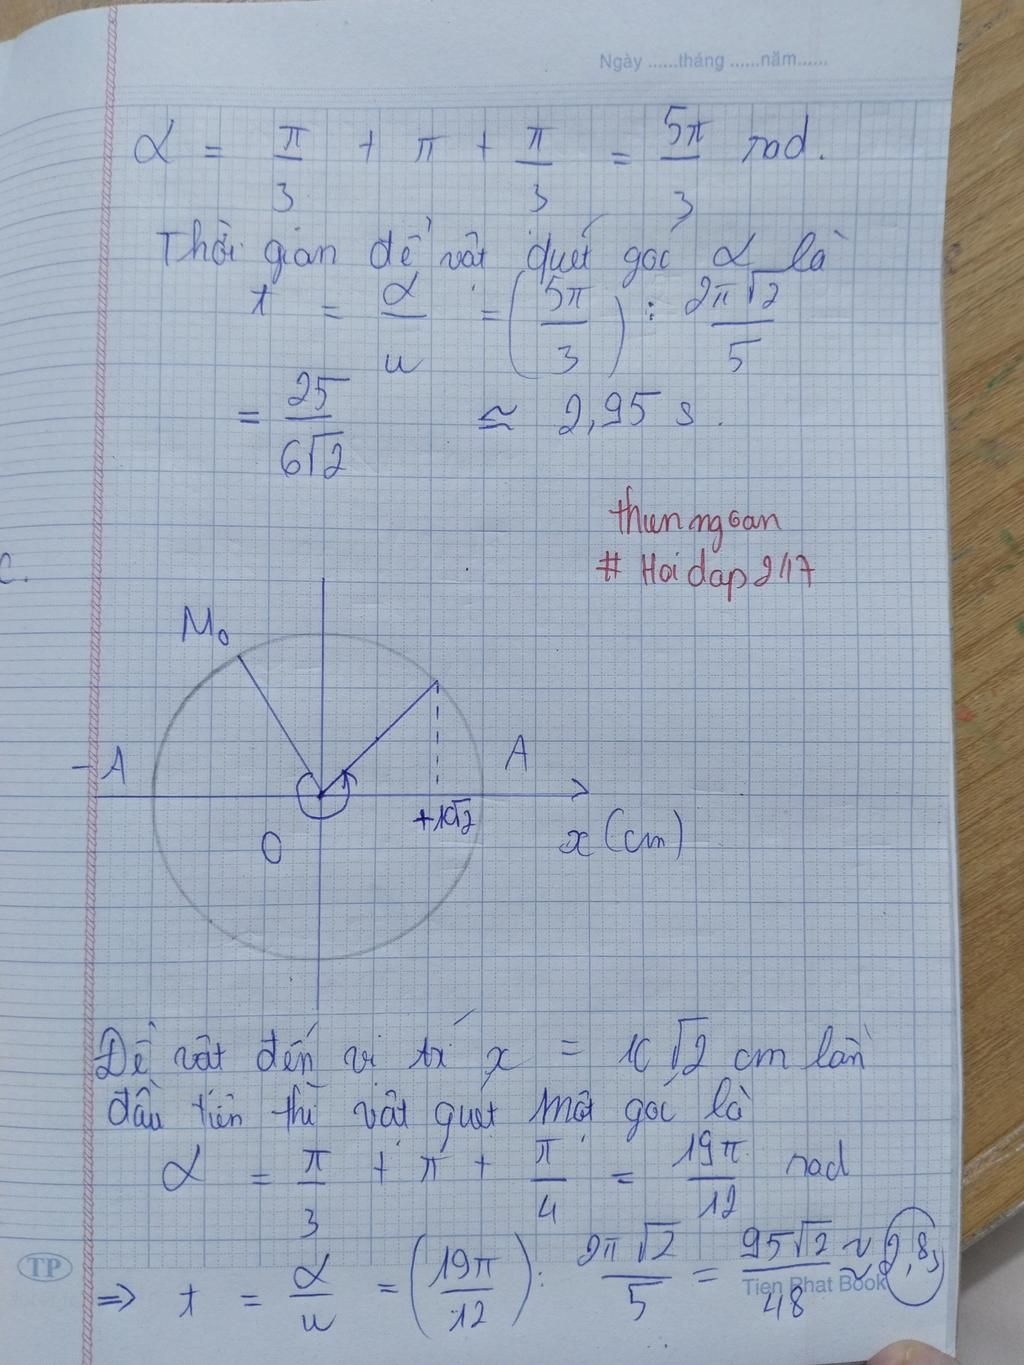 Ngày ......tháng ......năm......
α = π/3 + π + π/3 = 5π/3 rad.
Thời gian để vật quét góc α là
t = α/ω = (5π/3) : 2π√2/5
= 25/6√2 ≈ 2,95 s.
thunngoan
# Hoidap247
c.
M₀
-A
A
+10√2
O
x (cm)
Để vật đến vị trí x = 10√2 cm lần
đầu tiên thì vật quét một góc là
α = π/3 + π + π/4 = 19π/12 rad
⇒ t = α/ω = (19π/12) : 2π√2/5 = 95√2/48 ≈ 2,8s
TP
Tien Phat Book